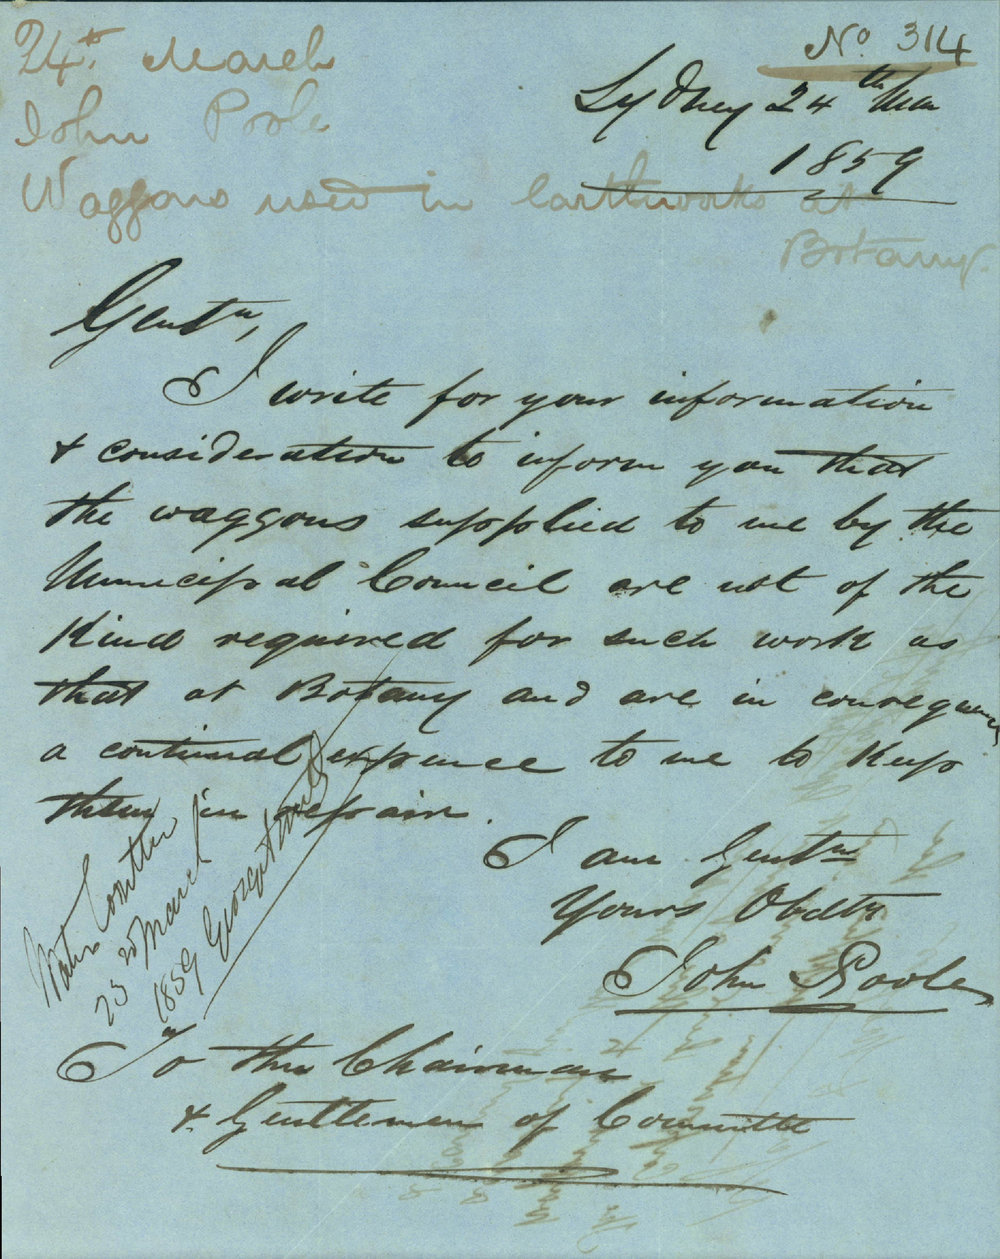 24th March
John Poole
Waggons used in Earthworks at
Botany.
No 314
Sydney 24th Mar
1859
Gentn,
I write for your information
& consideration to inform you that
the waggons supplied to me by the
Municipal Council are not of the
Kind required for such work as
that at Botany and are in consequence
a continual expence to me to Keep
them in repair.
I am Gentn
Yours Obdtly
John Poole
Water Comttee
March
1859
To the Chairman
& Gentlemen of Committee